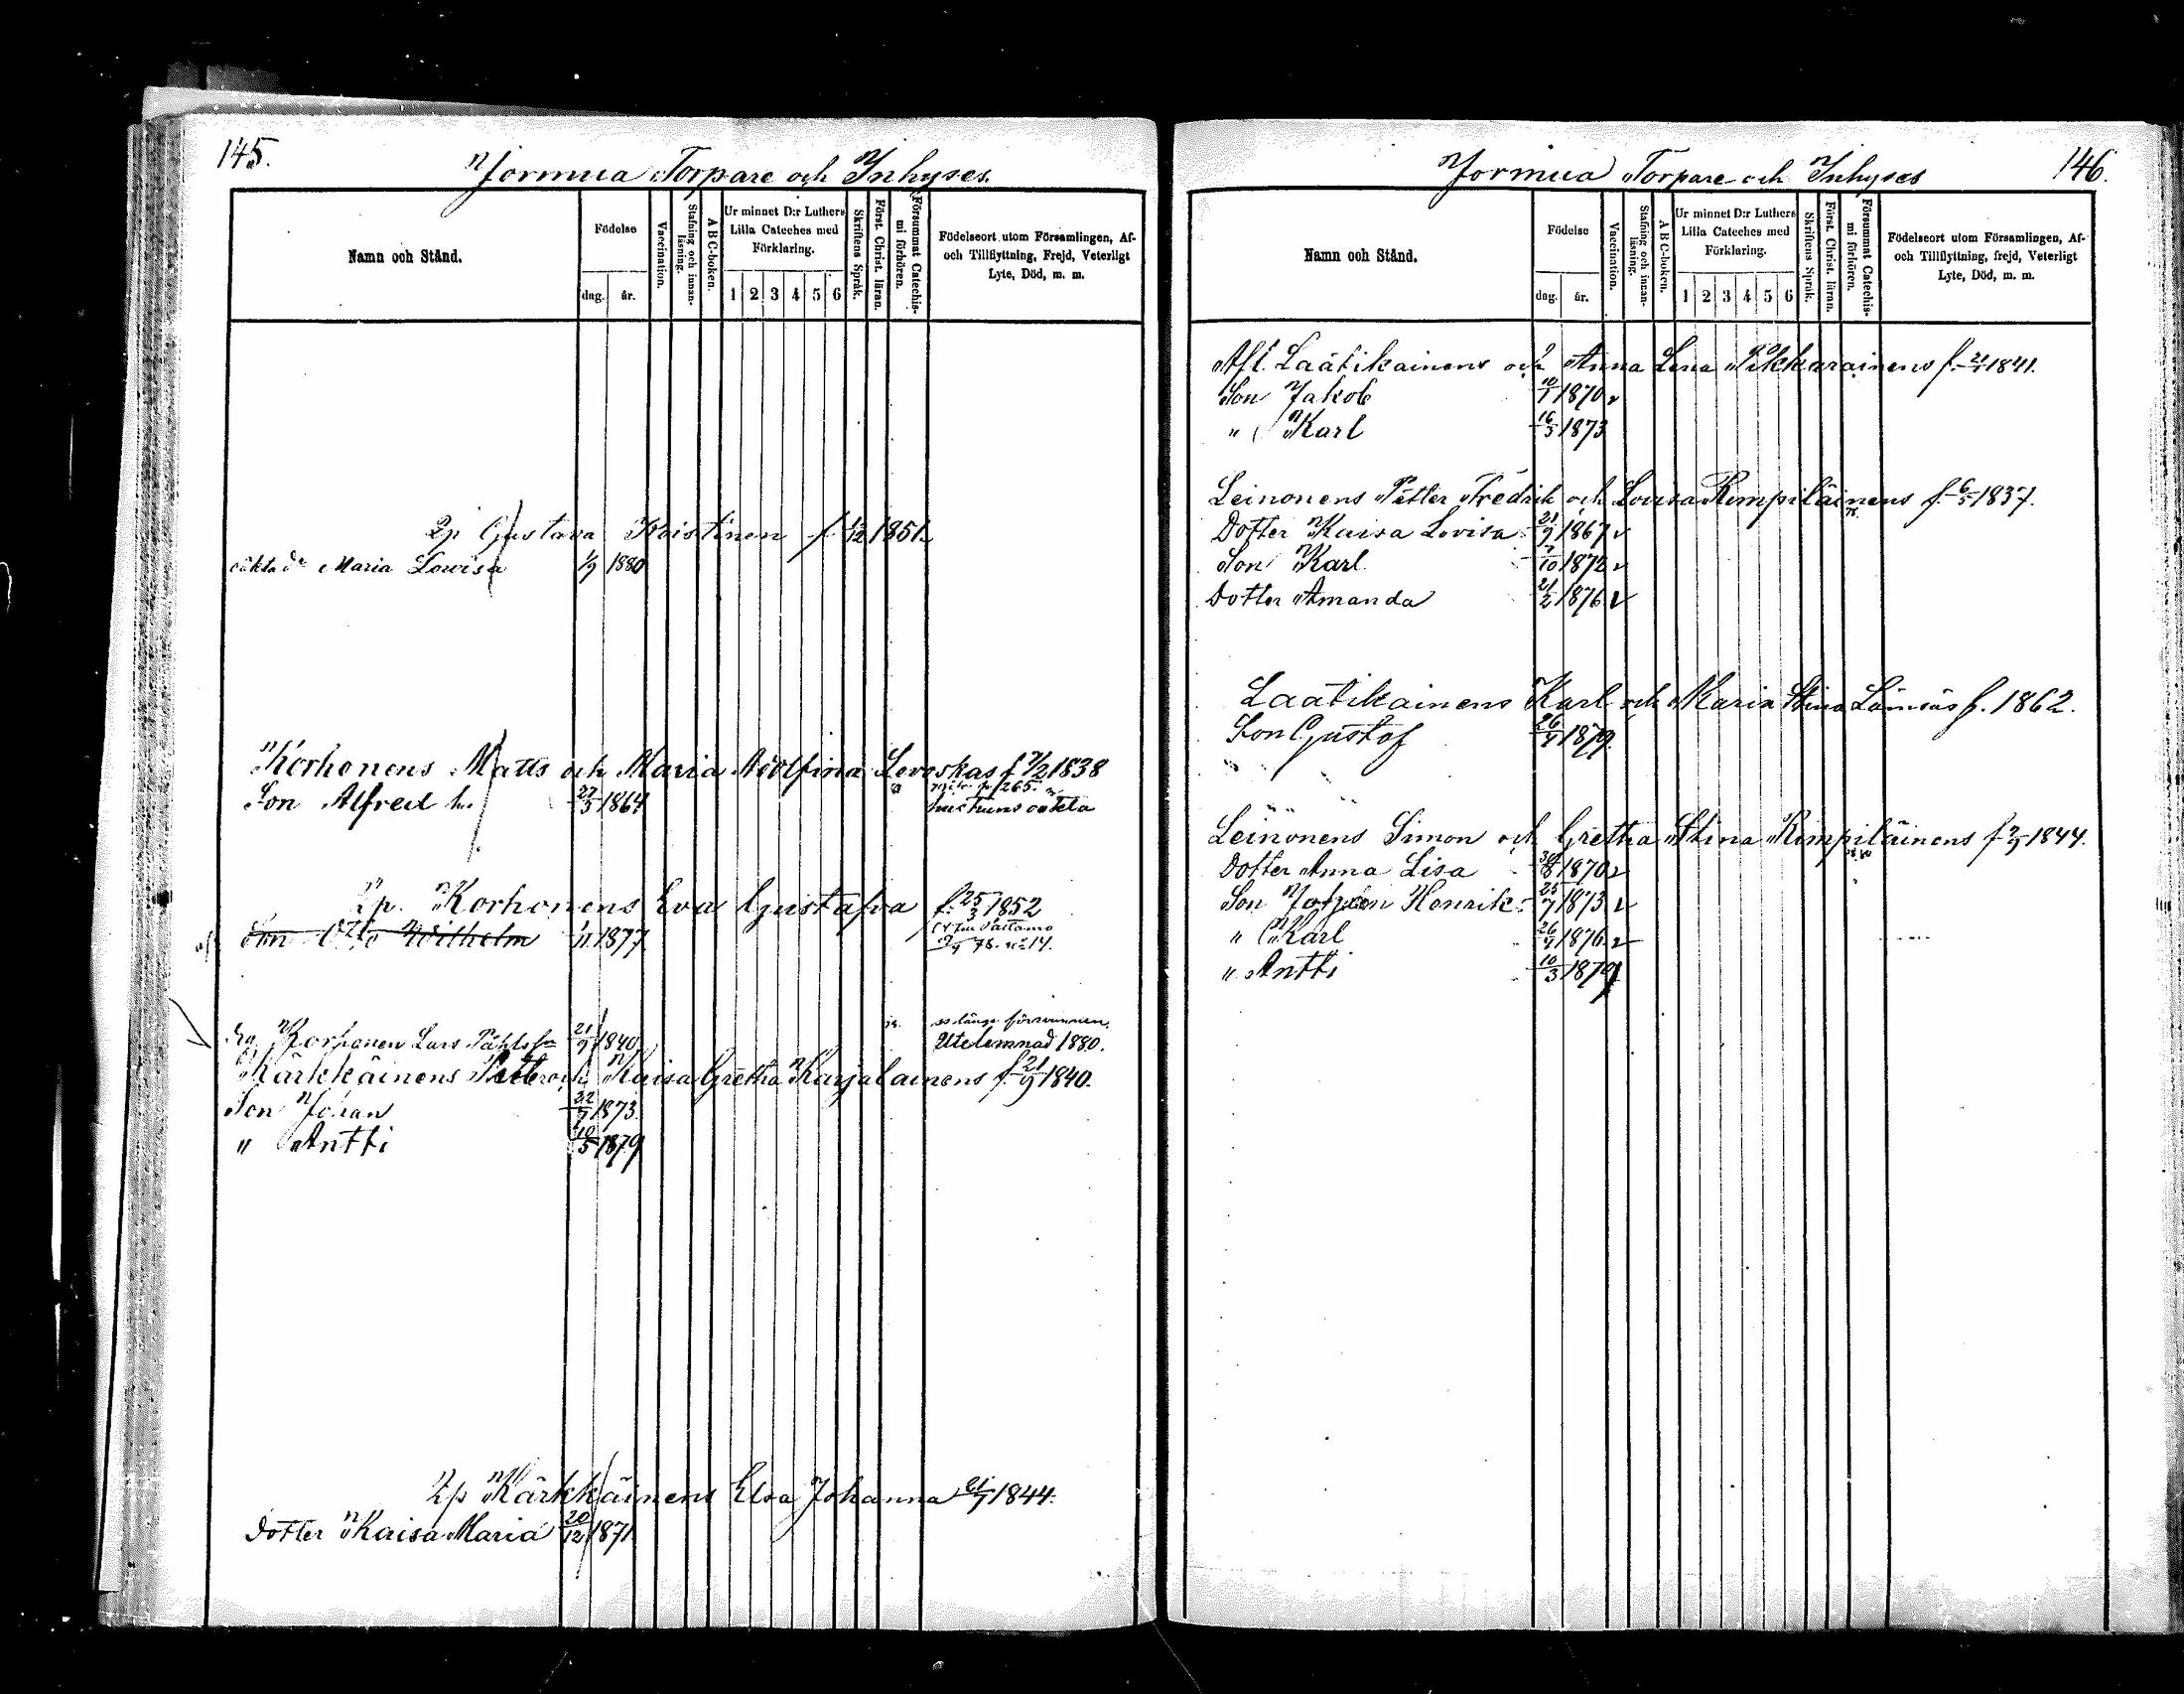 145.
Jormua Torpare och Inhyses.
Namn och Stånd.
Födelse
dag. år.
Vaccination.
Stafning och innanläsning.
ABC-boken.
Ur minnet D:r Luthers Lilla Cateches med Förklaring.
1 2 3 4 5 6
Skriftens Språk.
Först. Christ. läran.
Försummat Catechismi förhören.
Födelseort utom Församlingen, Af- och Tillflyttning, Frejd, Veterligt Lyte, Död, m. m.
Qp Gustava Koistinen f. 1/12 1851
oäkta dr Maria Lowisa 1/9 1880
Korhonens Matts och Maria Adolfina Levoskas f 1838
Son Alfred 27/3 1864
Qp. Korhonens Eva Gustafva f. 25/3 1852
Son Otto Wilhelm 1877
Paltamo
78. no 14.
länge försvunnen.
Korhonen Lars Påhlsson 21/9 1840 Utelemnad 1880.
Kärkkäinens Petter och Kaisa Gretha Karjalainens f. 21/9 1840.
Son Johan 22/7 1873.
" Antti 10/5 1879
Qp Kärkkäinens Elsa Johanna 21/7 1844.
Dotter Kaisa Maria 20/12 1871
146.
Jormua Torpare och Inhyses
Namn och Stånd.
Födelse
dag. år.
Vaccination.
Stafning och innanläsning.
ABC-boken.
Ur minnet D:r Luthers Lilla Cateches med Förklaring.
1 2 3 4 5 6
Skriftens Språk.
Först. Christ. läran.
Försummat Catechismi förhören.
Födelseort utom Församlingen, Af- och Tillflyttning, frejd, Veterligt Lyte, Död, m. m.
Afl. Laatikainens och Anna Lena Pikkarainens f. 1841.
Son Jakob 10/7 1870
" Karl 16/3 1873
Leinonens Petter Fredrik och Lovisa Rimpiläinens f. 6/5 1837.
Dotter Kaisa Lovisa 21/9 1867
Son Karl 7/10 1872
Dotter Amanda 21/2 1876
Laatikainens Karl och Maria Stina Lämsäs f. 1862.
Son Gustof 26/9 1879.
Leinonens Simon och Gretha Stina Rimpiläinens f 1844.
Dotter Anna Lisa 1870
Son Johan Henrik 25/7 1873
" Karl 26/9 1876
" Antti 10/3 1879